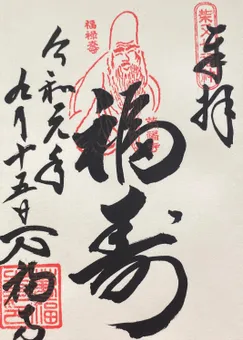 奉拝
福寿
福禄寿
令和元年
九月十五日
万福寺